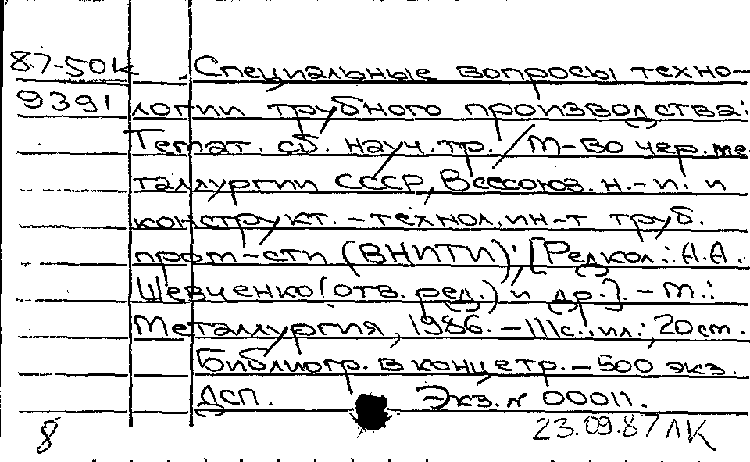 87-50к Специальные вопросы техно-
9391 логии трубного производства:
Темат. сб. науч. тр. / М-во чер. ме
таллургии СССР, Всесоюз. н.-и. и
конструкт.-технол. ин-т труб.
пром-сти (ВНИТИ); [Редкол.: А.А.
Шевченко (отв. ред.) и др.]. - М.:
Металлургия, 1986. - 111 с.: ил.; 20 см.
Библиогр. в конце тр. - 500 экз.
ДСП. Экз. № 00011.
8 23.09.87 ЛК